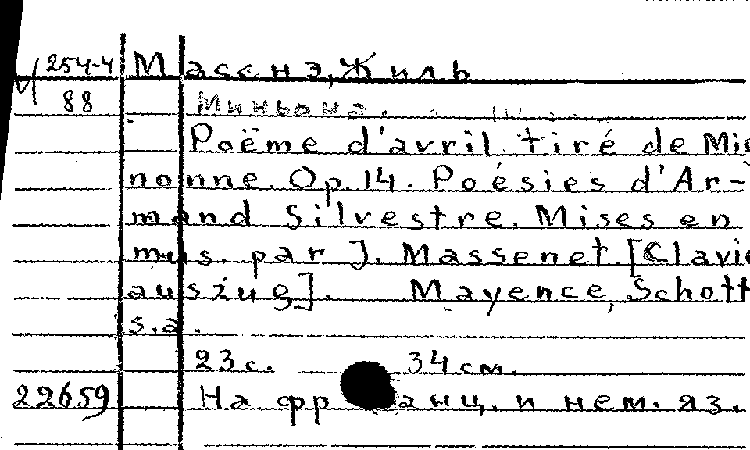 М 254-4 Масснэ, Жиль
88 Миньона.
Poëme d'avril tiré de Mig
nonne. Op. 14. Poésies d'Ar-
mand Silvestre. Mises en
mus. par J. Massenet. [Clavie
auszug]. Mayence, Schott
s.a.
23 с. 34 см.
22659 На франц. и нем. яз.